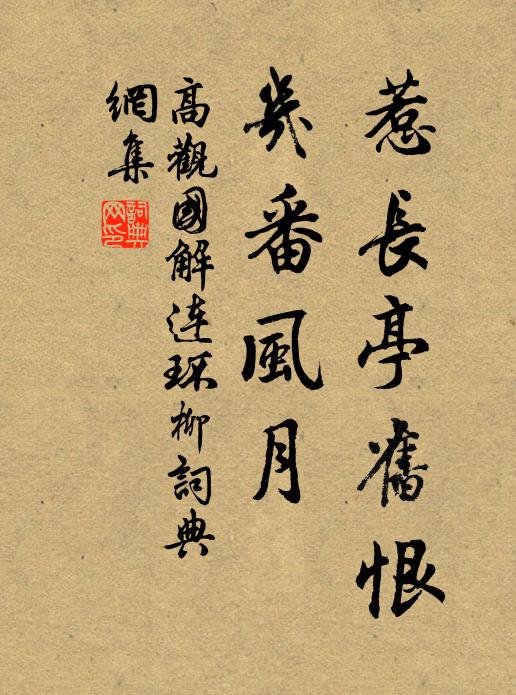 惹長亭舊恨
幾番風月
高觀國解連環柳詞典
網集
詞典網印